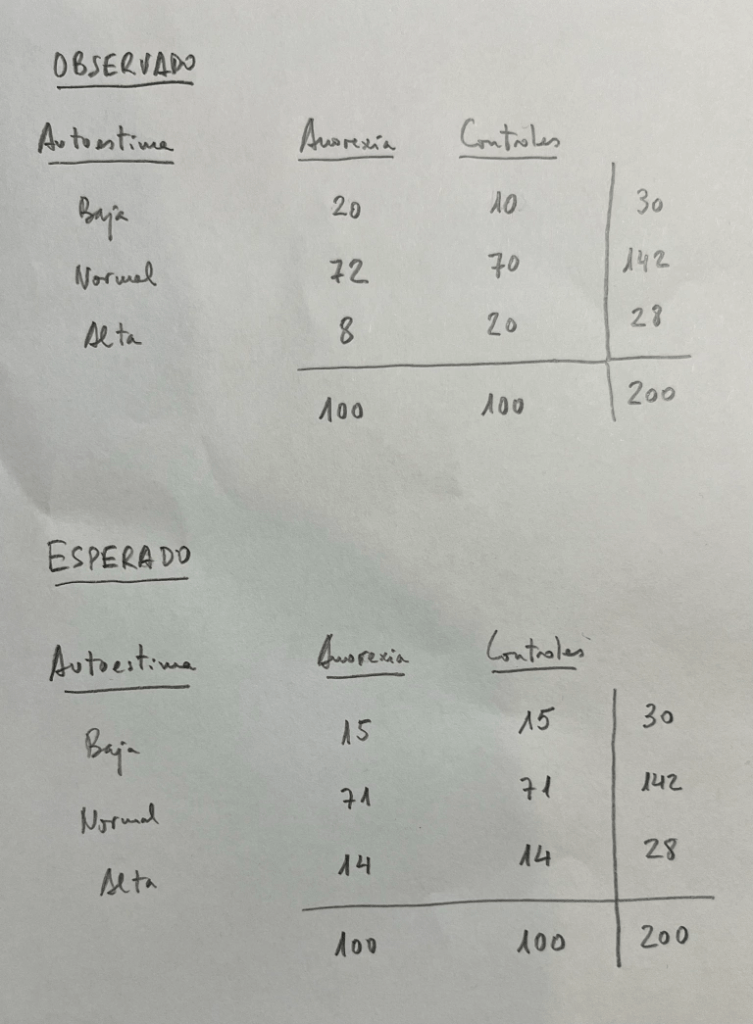 OBSERVADO
Autoestima Anorexia Controles
Baja 20 10 30
Normal 72 70 142
Alta 8 20 28
100 100 200
ESPERADO
Autoestima Anorexia Controles
Baja 15 15 30
Normal 71 71 142
Alta 14 14 28
100 100 200